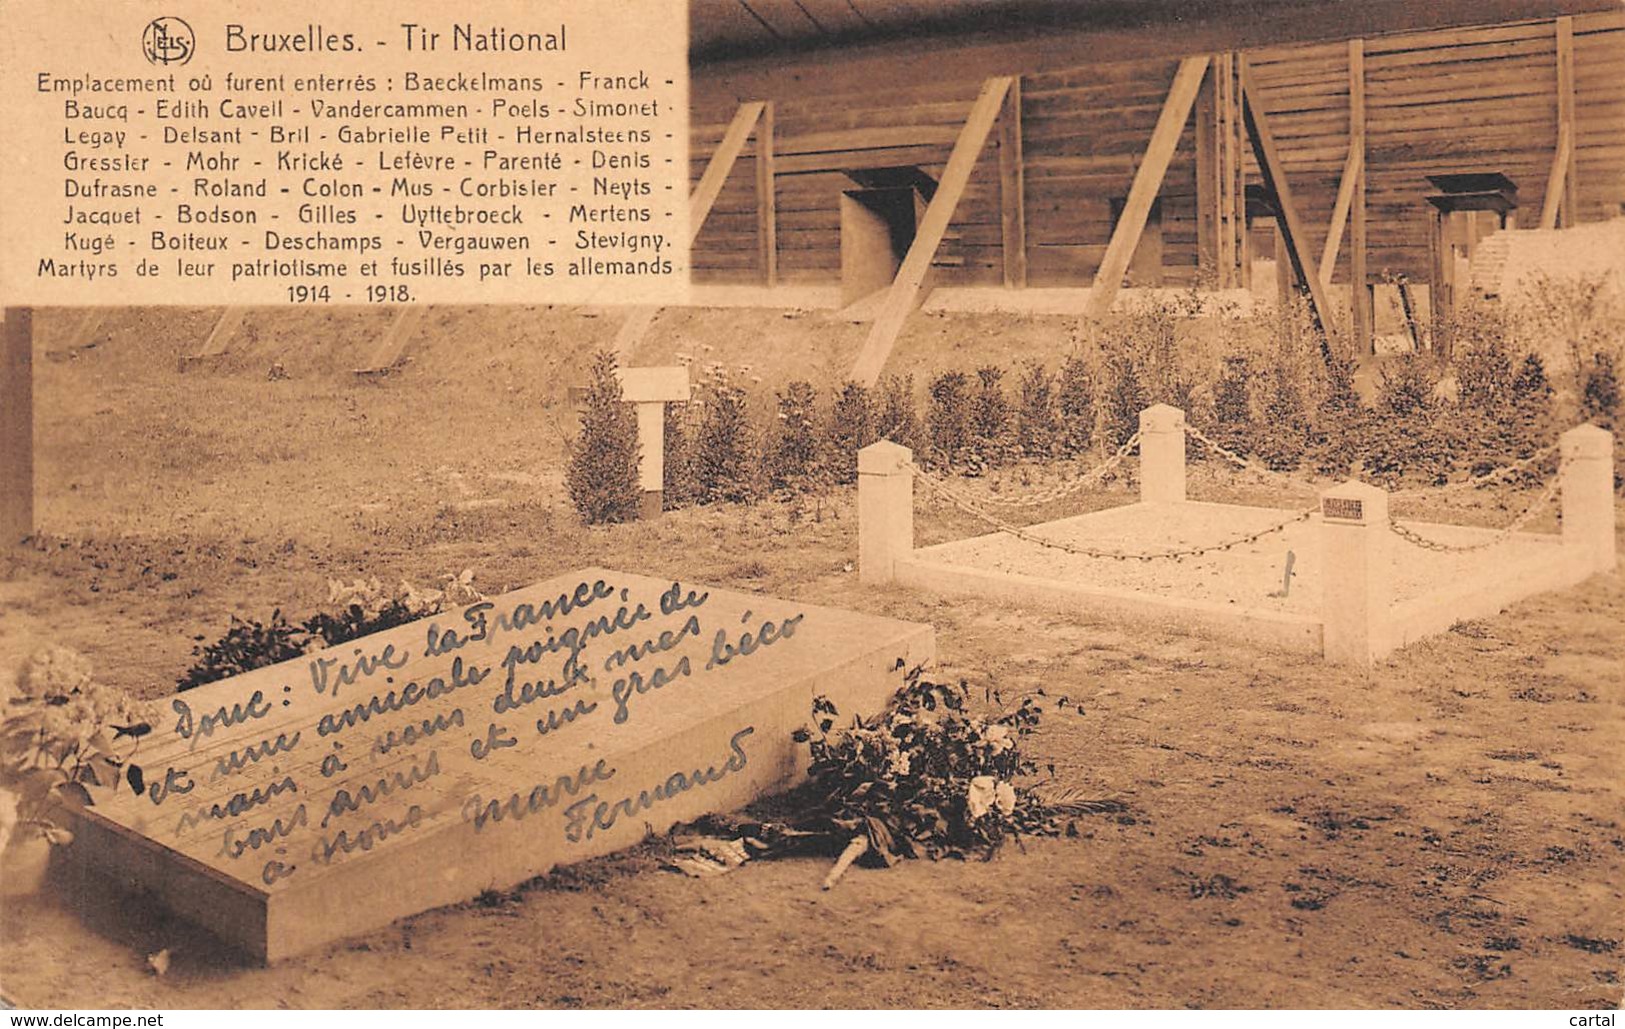 NELS
Bruxelles. - Tir National
Emplacement où furent enterrés : Baeckelmans - Franck -
Baucq - Edith Cavell - Vandercammen - Poels - Simonet -
Legay - Delsant - Bril - Gabrielle Petit - Hernalsteens -
Gressier - Mohr - Krické - Lefèvre - Parenté - Denis -
Dufrasne - Roland - Colon - Mus - Corbisier - Neyts -
Jacquet - Bodson - Gilles - Uyttebroeck - Mertens -
Kugé - Boiteux - Deschamps - Vergauwen - Stevigny.
Martyrs de leur patriotisme et fusillés par les allemands
1914 - 1918.
Donc : Vive la France,
et une amicale poignée de
main à vous deux, mes
bons amis et un gros béco
à Nono. Marie
Fernand
www.delcampe.net
cartal